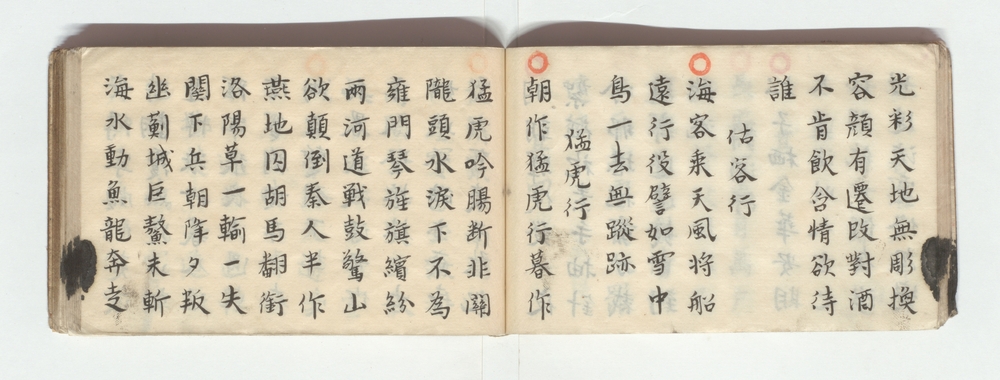 光彩天地無彫換
容顔有遷改對酒
不肯飲含情欲待
誰
估客行
海客乘天風将船
遠行役譬如雪中
鳥一去無蹤跡
猛虎行
朝作猛虎行暮作
猛虎吟腸断非關
隴頭水淚下不為
雍門琴旌旗繽紛
兩河道戰鼓驚山
欲顛倒秦人半作
燕地囚胡馬翻銜
洛陽草一輸一失
關下兵朝降夕叛
幽薊城巨鰲未斬
海水動魚龍奔走